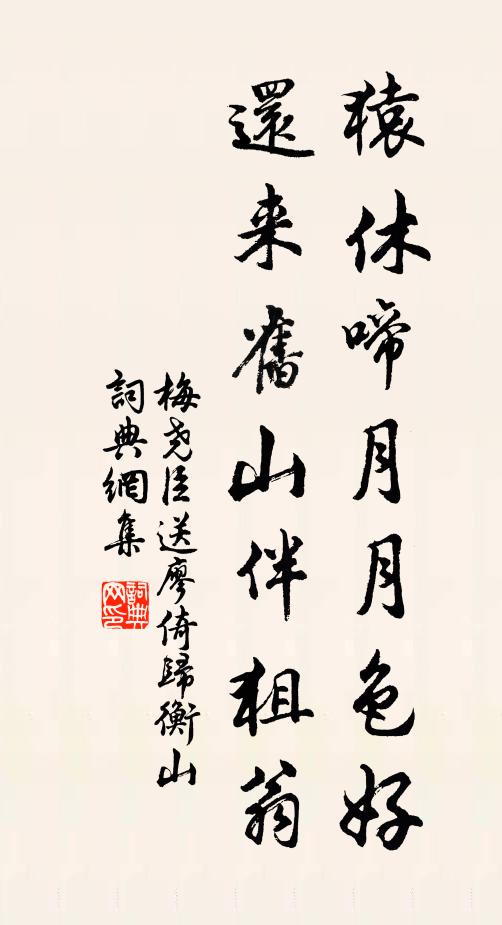 猿休啼月月色好
還来舊山伴狙翁
梅尧臣送廖倚歸衡山
詞典網集
詞典
网印